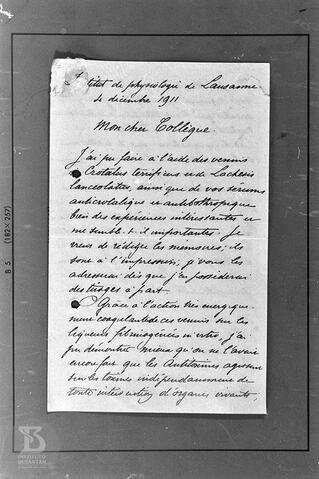 Institut de physiologie de Lausanne
4 décembre 1911
Mon cher Collègue.
J'ai pu faire à l'aide des venins
de Crotalus terrificus et de Lachesis
lanceolatus, ainsi que de vos sérums
anticrotalique et antibothropique
bien des expériences intéressantes et
me semble-t-il importantes. Je
viens de rédiger les mémoires; ils
sont à l'impression; je vous les
adresserai dès que j'en posséderai
des tirages à part.
Grâce à l'action très énergique
ment coagulante de ces venins sur les
liqueurs fibrinogénées in vitro, j'ai
pu démontrer mieux qu'on ne l'avait
encore fait que les Antitoxines agissent
sur les toxines indépendamment de
toute intervention d'organes vivants,
B 5 (182 x 257)
INSTITUTO
BUTANTAN